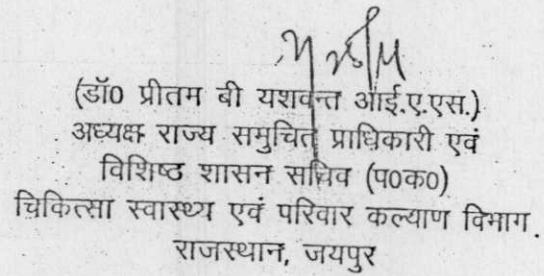 (डॉ0 प्रीतम बी यशवन्त आई.ए.एस.)
अध्यक्ष राज्य समुचित प्राधिकारी एवं
विशिष्ठ शासन सचिव (प0क0)
चिकित्सा स्वास्थ्य एवं परिवार कल्याण विभाग.
राजस्थान, जयपुर